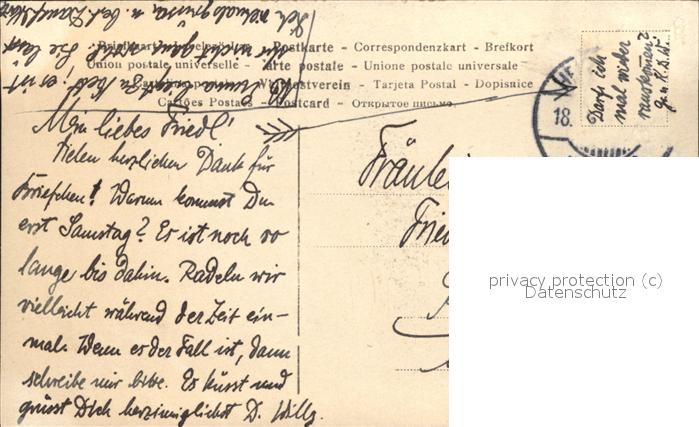 Briefkarte
Postkarte - Correspondenzkart - Brefkort
Union postale universelle - Carte postale - Unione postale universale
Weltpostverein - Tarjeta Postal - Dopisnice
Cartões Postaes - Postcard - Открытое письмо.
Darf ich
mal wieder
18.
Mein liebes Friedl!
Vielen herzlichen Dank für
Briefchen! Warum kommst Du
erst Samstag? Es ist noch so
lange bis dahin. Radeln wir
vielleicht während der Zeit ein-
mal. Wenn es der Fall ist, dann
schreibe mir bitte. Es küsst und
grüsst Dich herzinniglichst D. Willy.
Fräulei
Frie
privacy protection (c)
Datenschutz